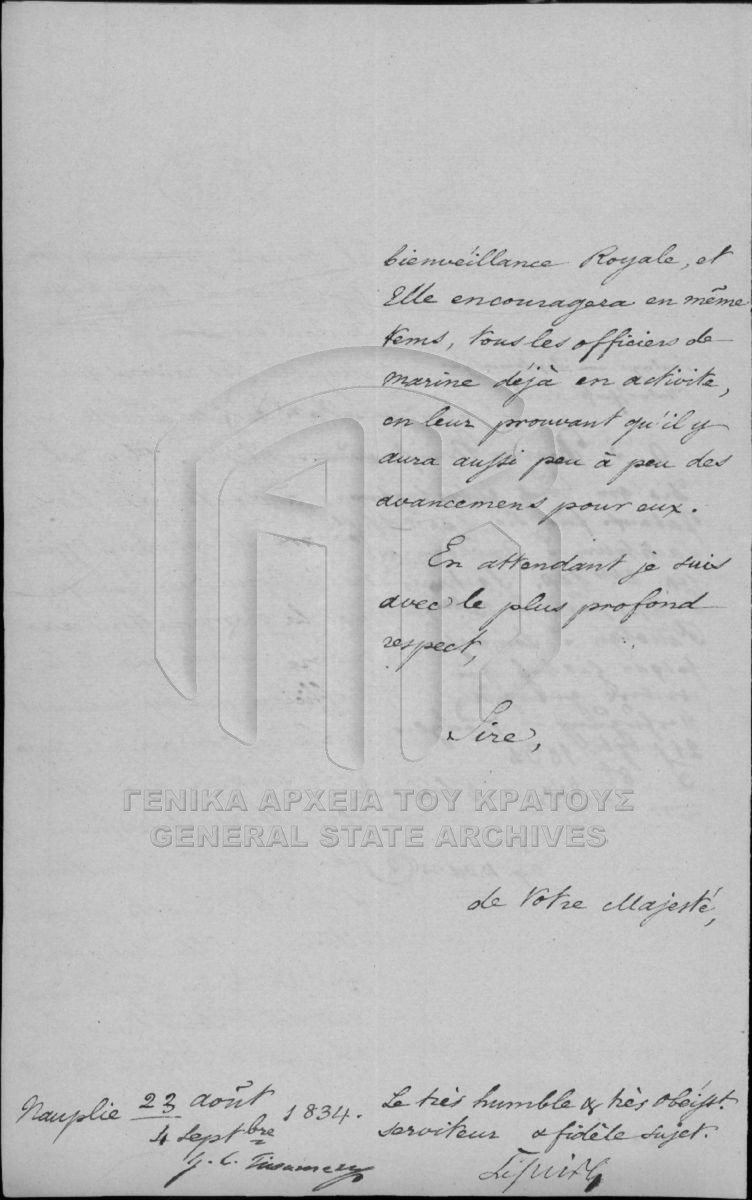 bienvéillance Royale, et
Elle encouragera en même
tems, tous les officiers de
marine déjà en activite,
en leur prouvant qu'il y
aura aussi peu à peu des
avancemens pour eux.
En attendant je suis
avec le plus profond
respect,
Sire,
ΓΕΝΙΚΑ ΑΡΧΕΙΑ ΤΟΥ ΚΡΑΤΟΥΣ
GENERAL STATE ARCHIVES
de Votre Majesté,
Nauplie 23 août / 4 septbre 1834.
Le très humble & très obéisst.
serviteur & fidèle sujet.